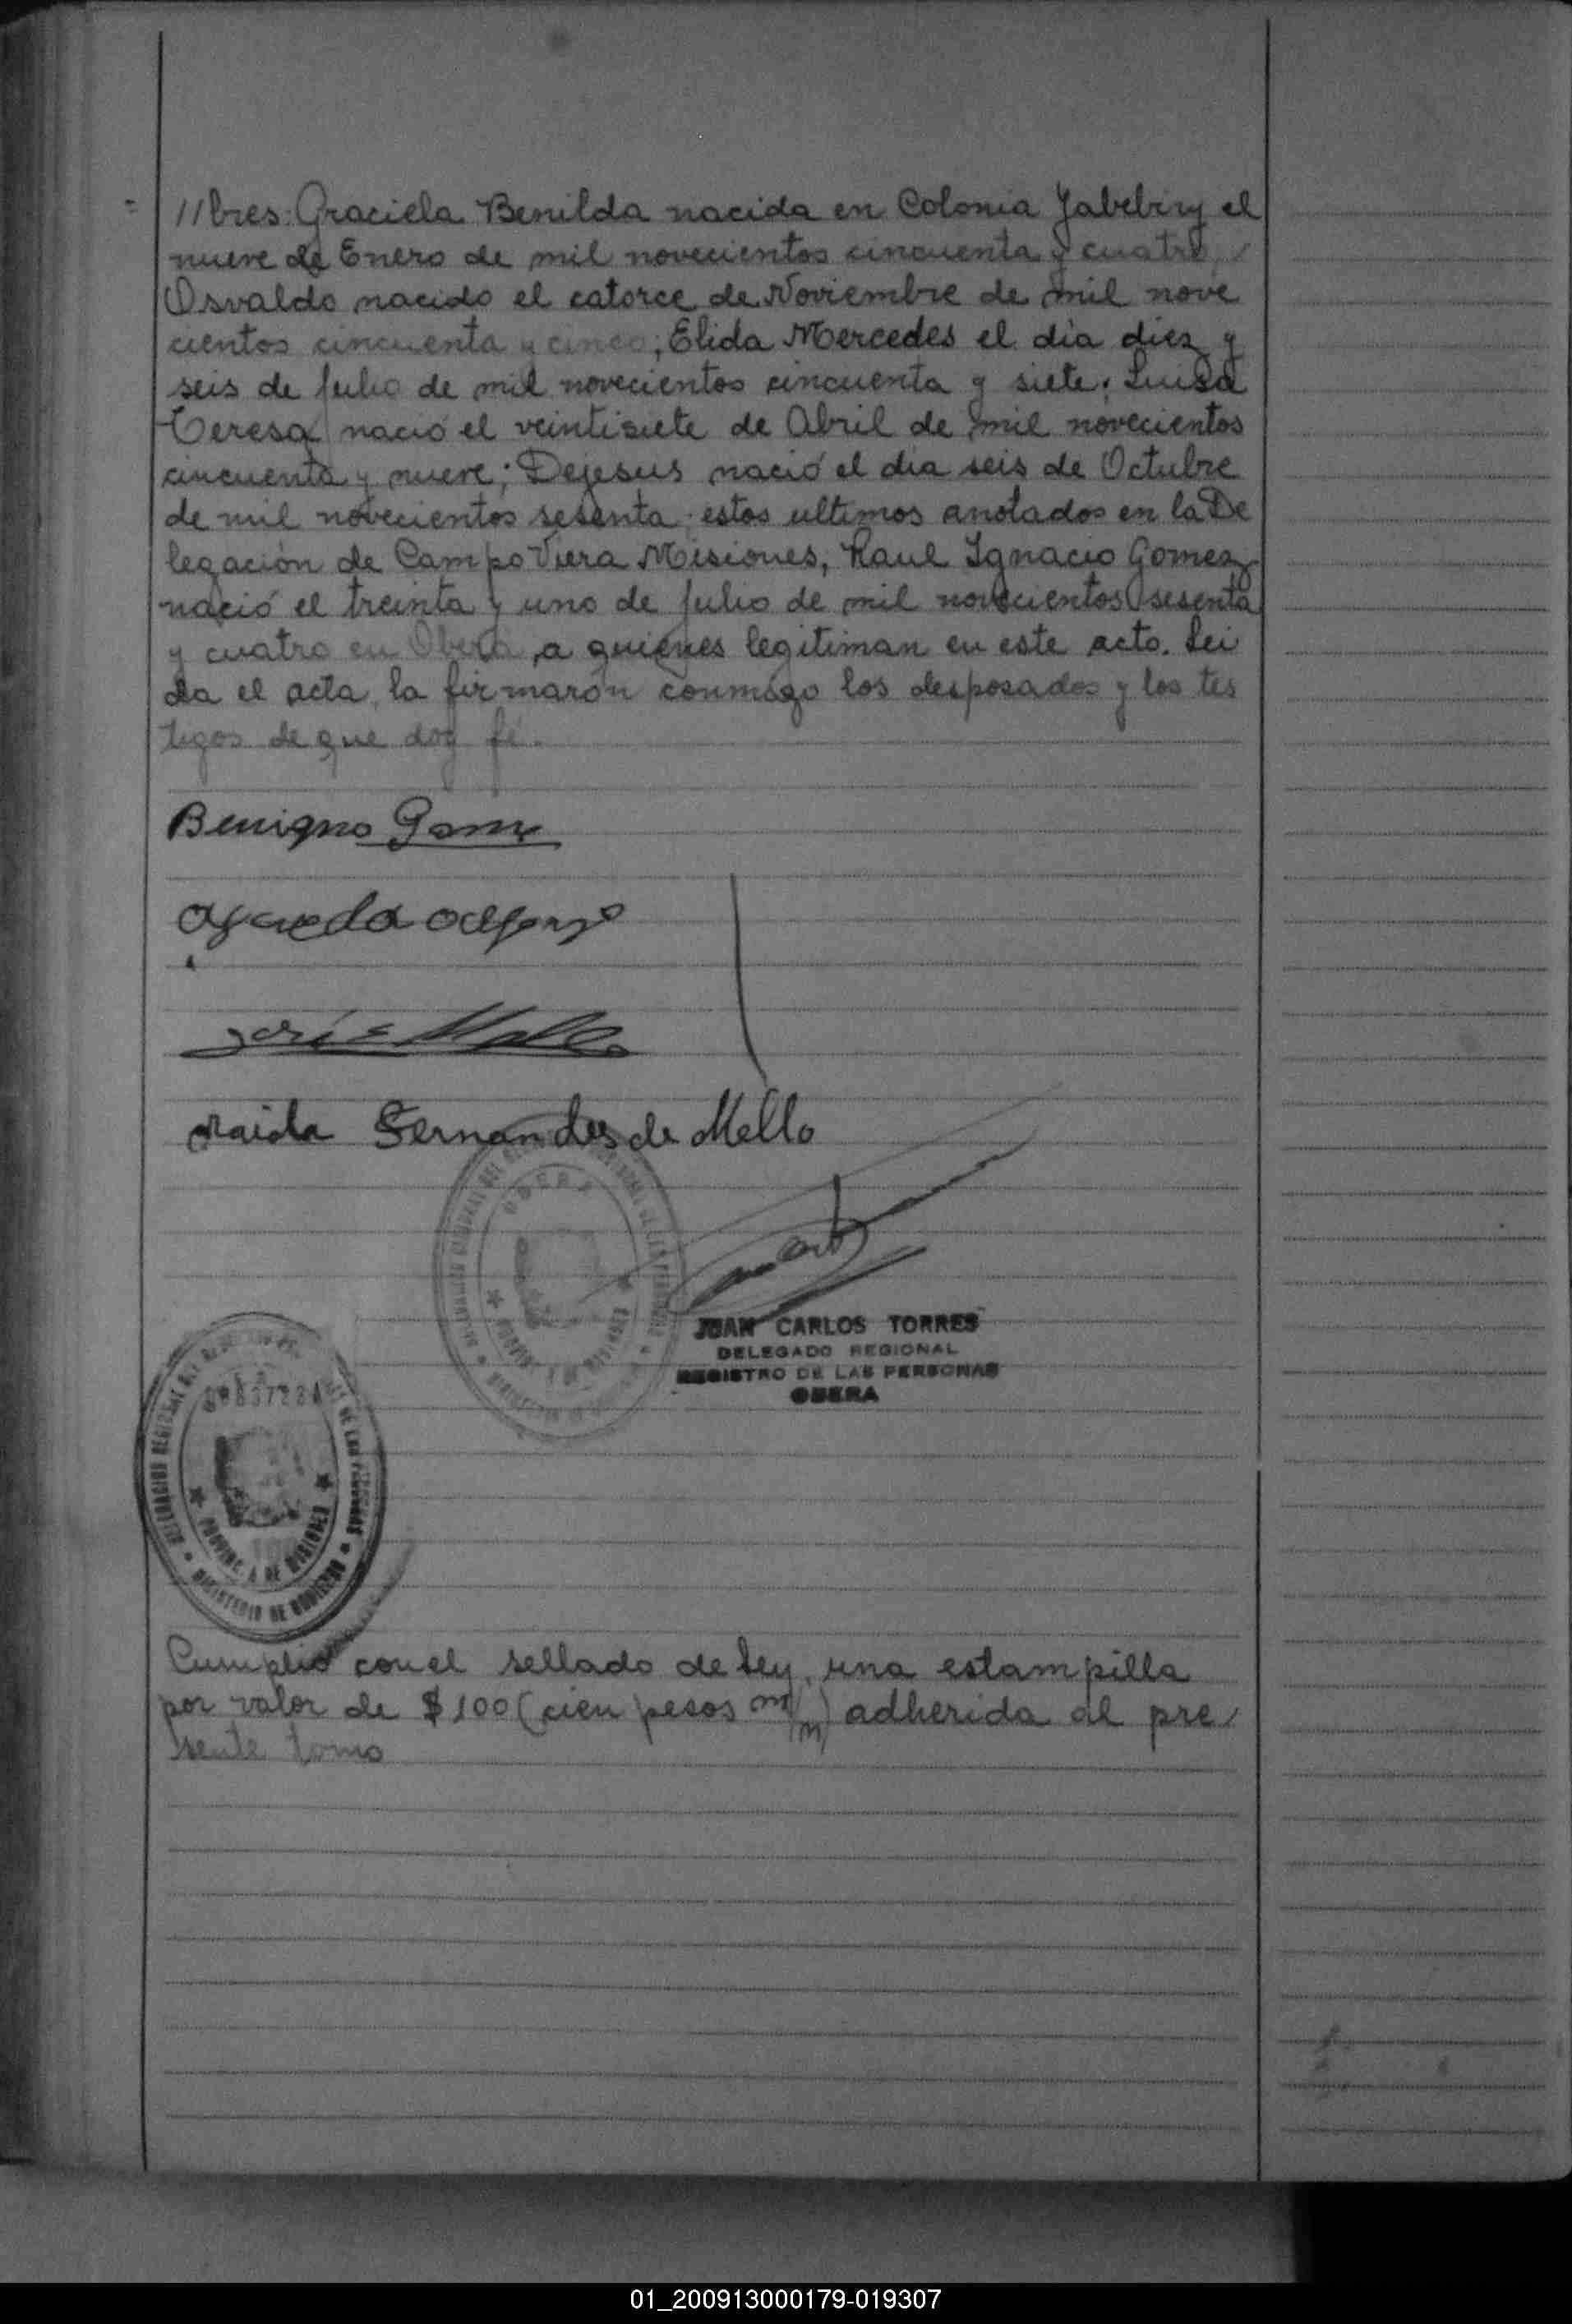 //bres: Graciela Benilda nacida en Colonia Yabebiry el
nueve de Enero de mil novecientos cincuenta y cuatro,
Osvaldo nacido el catorce de Noviembre de mil nove
cientos cincuenta y cinco; Elida Mercedes el día diez y
seis de Julio de mil novecientos cincuenta y siete; Luisa
Teresa nació el veintisiete de Abril de mil novecientos
cincuenta y nueve; Dejesus nació el dia seis de Octubre
de mil novecientos sesenta; estos ultimos anotados en la De
legación de Campo Viera Misiones; Raul Ignacio Gomez
nació el treinta y uno de Julio de mil novecientos sesenta
y cuatro en Oberá, a quienes legitiman en este acto. Lei
da el acta, la firmarón conmigo los desposados y los tes
tigos de que doy fé.
Benigno Gom
Agueda
José Mello
Naida Fernandes de Mello
OBERA
JUAN CARLOS TORRES
DELEGADO REGIONAL
REGISTRO DE LAS PERSONAS
OBERA
DELEGACION REGIONAL DEL REGISTRO DE LAS PERSONAS
PROVINCIA DE MISIONES
MINISTERIO DE GOBIERNO
Cumplió con el sellado de Ley, una estampilla
por valor de $ 100 (cien pesos m/n) adherida al pre/
sente tomo
01_200913000179-019307